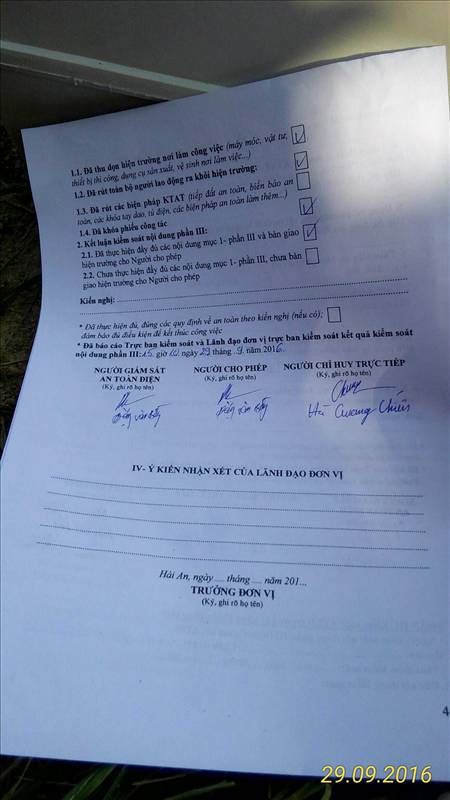 1.1. Đã thu dọn hiện trường nơi làm công việc (máy móc, vật tư,
thiết bị thi công, dụng cụ sản xuất, vệ sinh nơi làm việc...)
1.2. Đã rút toàn bộ người lao động ra khỏi hiện trường:
1.3. Đã rút các biện pháp KTAT (tiếp đất an toàn, biển báo an
toàn, các khóa tay dao, tủ điện, các biện pháp an toàn làm thêm...)
1.4. Đã khóa phiếu công tác
2. Kết luận kiểm soát nội dung phần III:
2.1. Đã thực hiện đầy đủ các nội dung mục 1- phần III và bàn giao
hiện trường cho Người cho phép
2.2. Chưa thực hiện đầy đủ các nội dung mục 1- phần III, chưa bàn
giao hiện trường cho Người cho phép
Kiến nghị:
* Đã thực hiện đủ, đúng các quy định về an toàn theo kiến nghị (nếu có);
đảm bảo đủ điều kiện để kết thúc công việc
* Đã báo cáo Trực ban kiểm soát và Lãnh đạo đơn vị trực ban kiểm soát kết quả kiểm soát
nội dung phần III: 15 giờ 10, ngày 29 tháng 9. năm 2016.
NGƯỜI GIÁM SÁT NGƯỜI CHO PHÉP NGƯỜI CHỈ HUY TRỰC TIẾP
AN TOÀN ĐIỆN (Ký, ghi rõ họ tên) (Ký, ghi rõ họ tên)
(Ký, ghi rõ họ tên)
Hà Cương Chiến
IV- Ý KIẾN NHẬN XÉT CỦA LÃNH ĐẠO ĐƠN VỊ
Hải An, ngày .... tháng .... năm 201...
TRƯỞNG ĐƠN VỊ
(Ký, ghi rõ họ tên)
4
29.09.2016